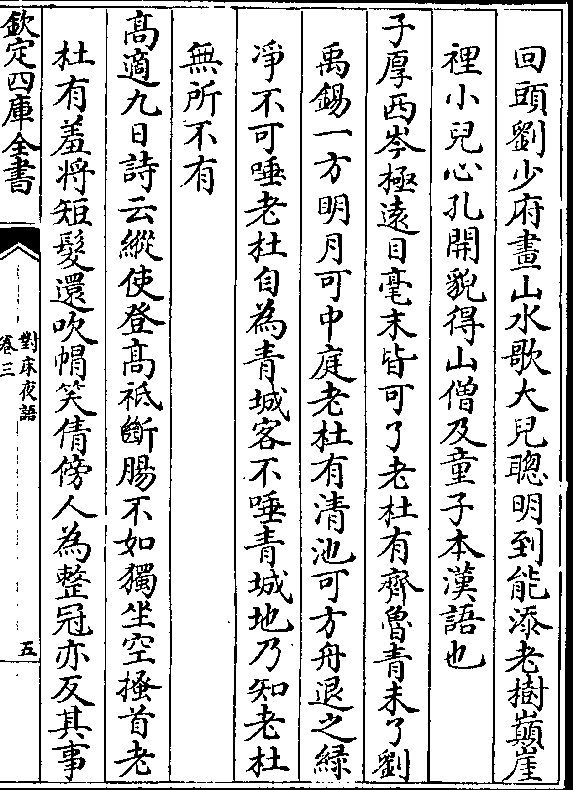 回頭劉少府畫山水歌大兒聰明到能添老樹巔崖
裡小兒心孔開貌得山僧及童子本漢語也
子厚西岑極遠目毫末皆可了老杜有齊魯青未了劉
禹錫一方明月可中庭老杜有清池可方舟退之綠
凈不可唾老杜自為青城客不唾青城地乃知老杜
無所不有
高適九日詩云縱使登高祗斷腸不如獨坐空搔首老
杜有羞將短髮還吹帽笑倩傍人為整冠亦反其事
欽定四庫全書
對床夜語
卷三
五